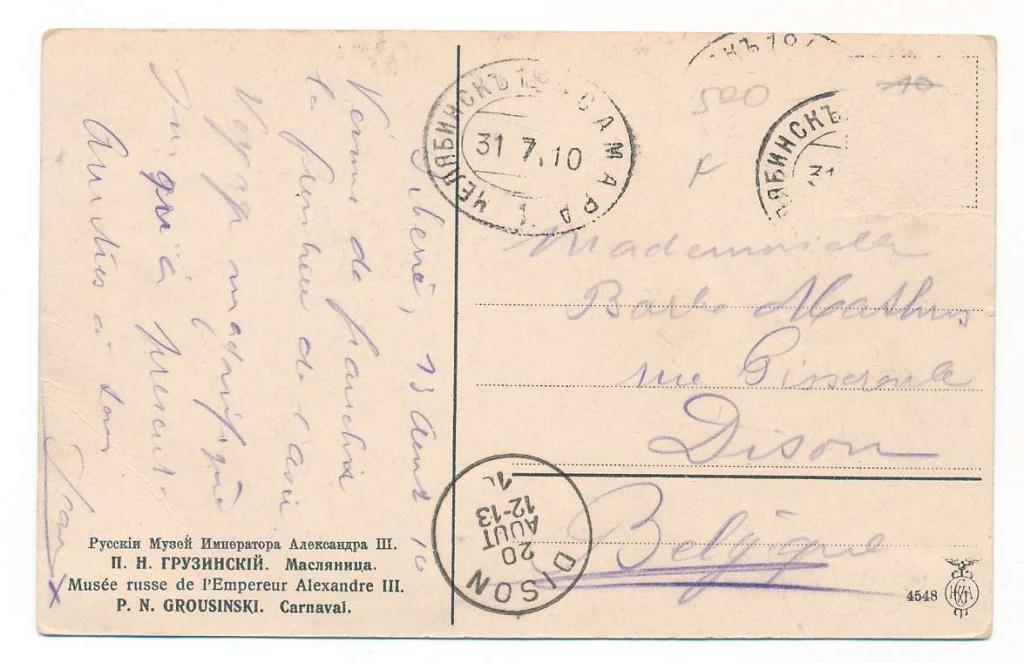 Sibérie, 13 Aout 10
Venons de franchir
la frontière de l'Asie
Voyage magnifique
jusqu'à présent.
Amitiés à tous
Русскій Музей Императора Александра III.
П. Н. ГРУЗИНСКІЙ. Масляница.
Musée russe de l'Empereur Alexandre III.
P. N. GROUSINSKI. Carnaval.
ЧЕЛЯБИНСКЪ 10 САМАРА
31 7.10
1
НСКЪ 10
ЛЯБИНСКЪ
31
500
10
Mademoiselle
Mathieu
rue
Dison
Belgique
DISON
20
AOUT
12-13
10
4548